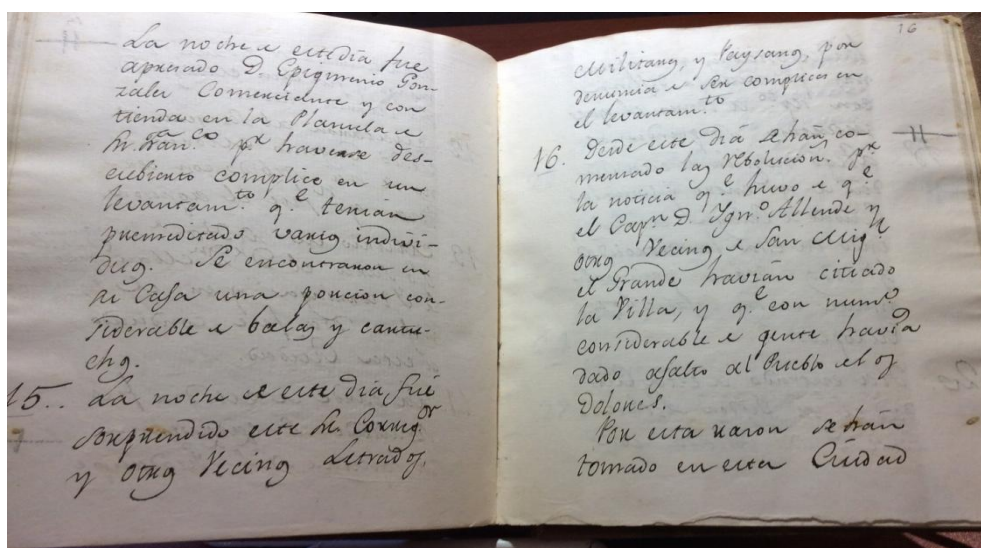 La noche de este dia fue
apresado D. Epigmenio Gon-
zales Comerciante y con
tienda en la Plazuela de
S. Fran.co pr haverse des-
cubierto complice en un
levantam.to q.e tenian
premeditado varios indivi-
duos. Se encontraron en
su Casa una porcion con-
siderable de balas y cartu-
chos.
15.. La noche de este Dia fue
sorprendido este Sr. Correg.or
y otros Vecinos Letrados,
16
Militares, y Paysanos, por
denuncia de ser complices en
el levantam.to
16. Desde este Dia se han co-
menzado las rebolucion.s pr
la noticia q.e huvo de q.e
el Cap.n D. Ygn.o Allende y
otros Vecinos de San Mig.l
el Grande havian citiado
la Villa, y q.e con num.o
considerable de gente havia
dado asalto al Pueblo de los
Dolores.
Por esta razon se han
tomado en esta Ciudad